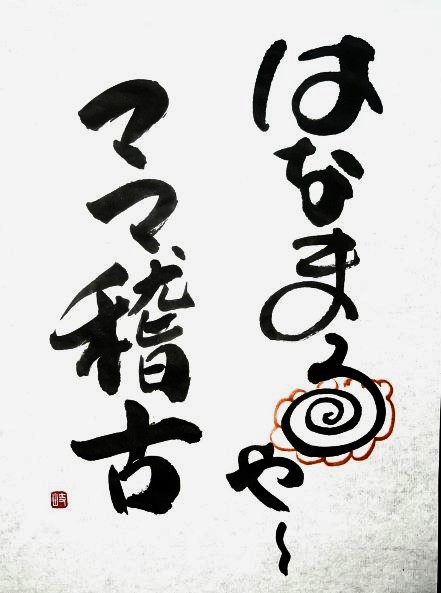 はなまるや〜
ママ稽古